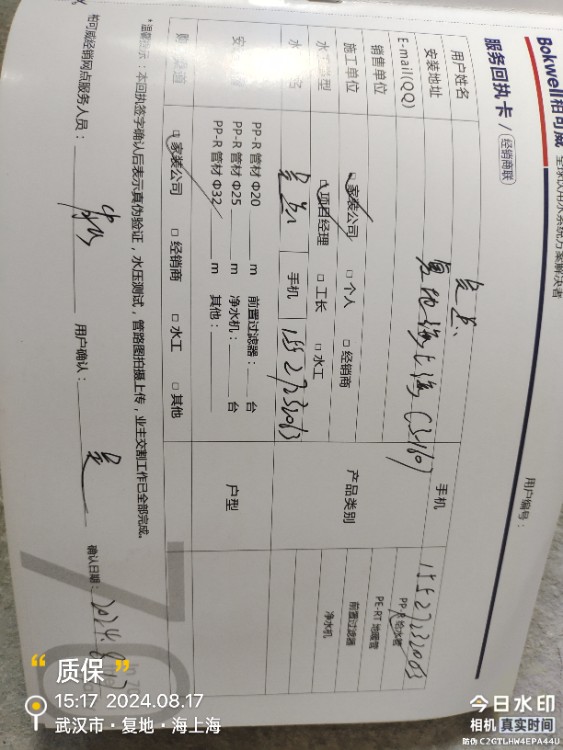 Bokwell柏可威 全球饮用水系统方案解决者
服务回执卡 / 经销商联
用户编号：
用户姓名
手机 15527232063
安装地址 复地海上海
E-mail(QQ)
销售单位
产品类别
PP-R 给水管
PE-RT 地暖管
前置过滤器
净水机
施工单位 □家装公司 □个人 □经销商
□项目经理 □工长 □水工
手机 15527232063
PP-R 管材 Φ20 m 前置过滤器： 台
PP-R 管材 Φ25 m 净水机： 台
PP-R 管材 Φ32 m 其他：
户型
□家装公司 □经销商 □水工 □其他
*温馨提示：本回执签字确认后表示真伪验证，水压测试，管路图拍摄上传，业主交割工作已全部完成。
柏可威经销网点服务人员：
用户确认：
确认日期：2024.8.17
“质保”
15:17 2024.08.17
武汉市·复地·海上海
今日水印
相机 真实时间
防伪 C2GTLHW4EPA44U